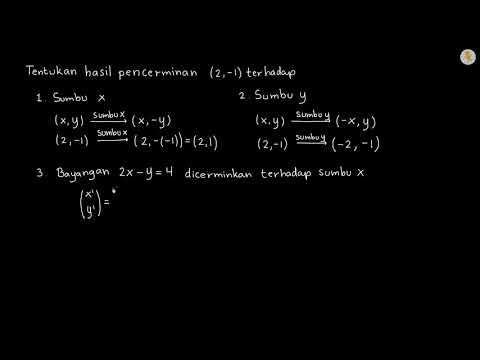 Tentukan hasil pencerminan (2,-1) terhadap
1. Sumbu x
(x,y) Sumbu X (x,-y)
(2,-1) Sumbu x (2,-(-1)) = (2,1)
2. Sumbu y
(x,y) Sumbu y (-x,y)
(2,-1) Sumbu y (-2,-1)
3. Bayangan 2x-y=4 dicerminkan terhadap sumbu x
(x'
y') =